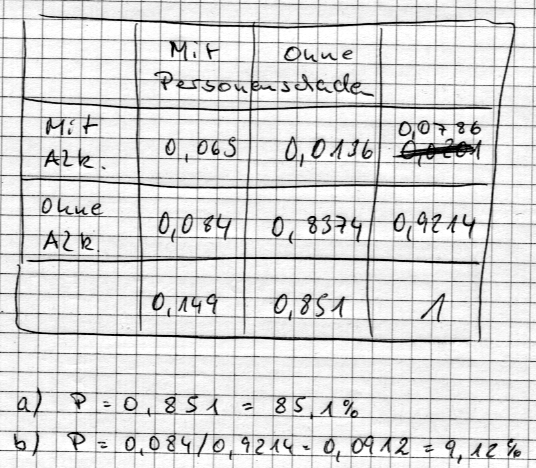 Mit Ohne
Personenschaden
0,0786
Mit
Alk. 0,065 0,0136
Ohne
Alk. 0,084 0,8374 0,9214
0,149 0,851 1
a) P = 0,851 = 85,1%
b) P = 0,084/0,9214 = 0,0912 = 9,12%